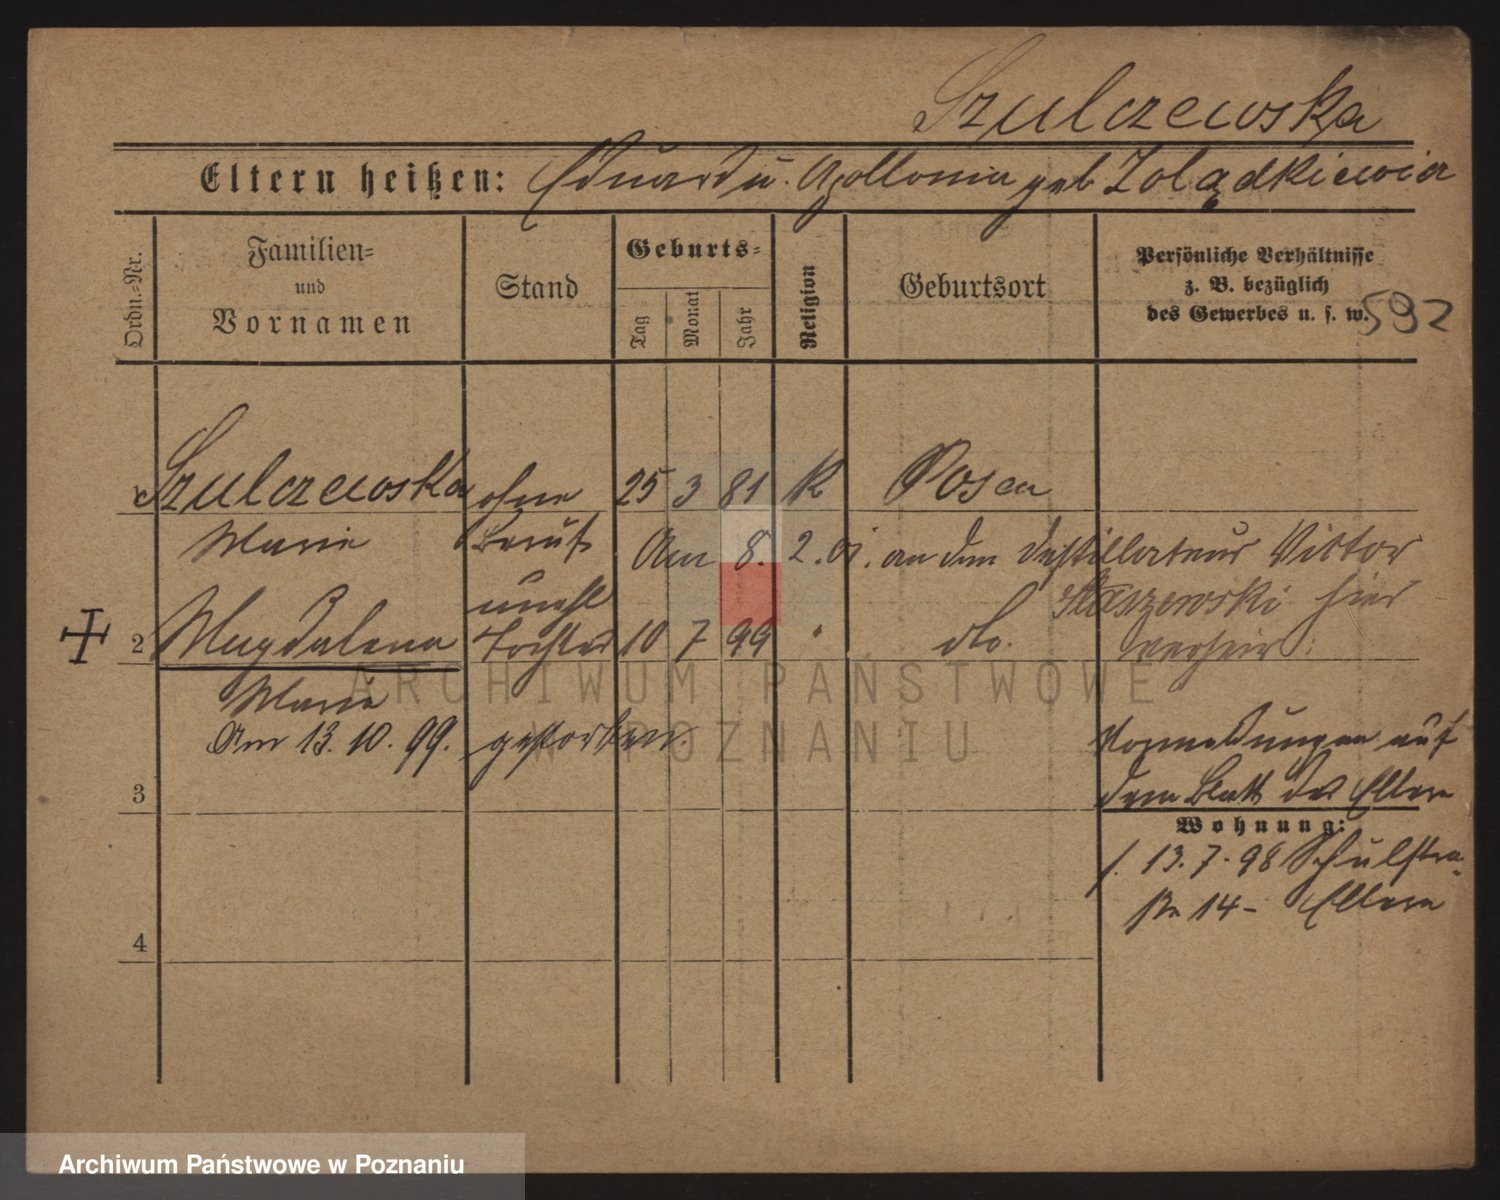 Szulczewska
Eltern heißen: Eduard u. Apollonia geb Zolądkiewicz
Ordn.-Nr.
Familien-
und
Vornamen
Stand
Geburts-
Tag
Monat
Jahr
Religion
Geburtsort
Persönliche Verhältnisse
z. B. bezüglich
des Gewerbes u. s. w.
592
1 Szulczewska ohne 25 3 81 K Posen
Marie Beruf Am 8. 2. 01. an den Destillateur Victor
unehl Staszewski hier
2 Magdalena Tochter 10 7 99 " do. verheir:
Marie
Am 13. 10. 99. gestorben.
Vormeldungen auf
dem Blatt der Eltern
3
Wohnung:
1. 13. 7. 98 Schulstra-
ße 14 - Eltern
4
ARCHIWUM PAŃSTWOWE
W POZNANIU
Archiwum Państwowe w Poznaniu